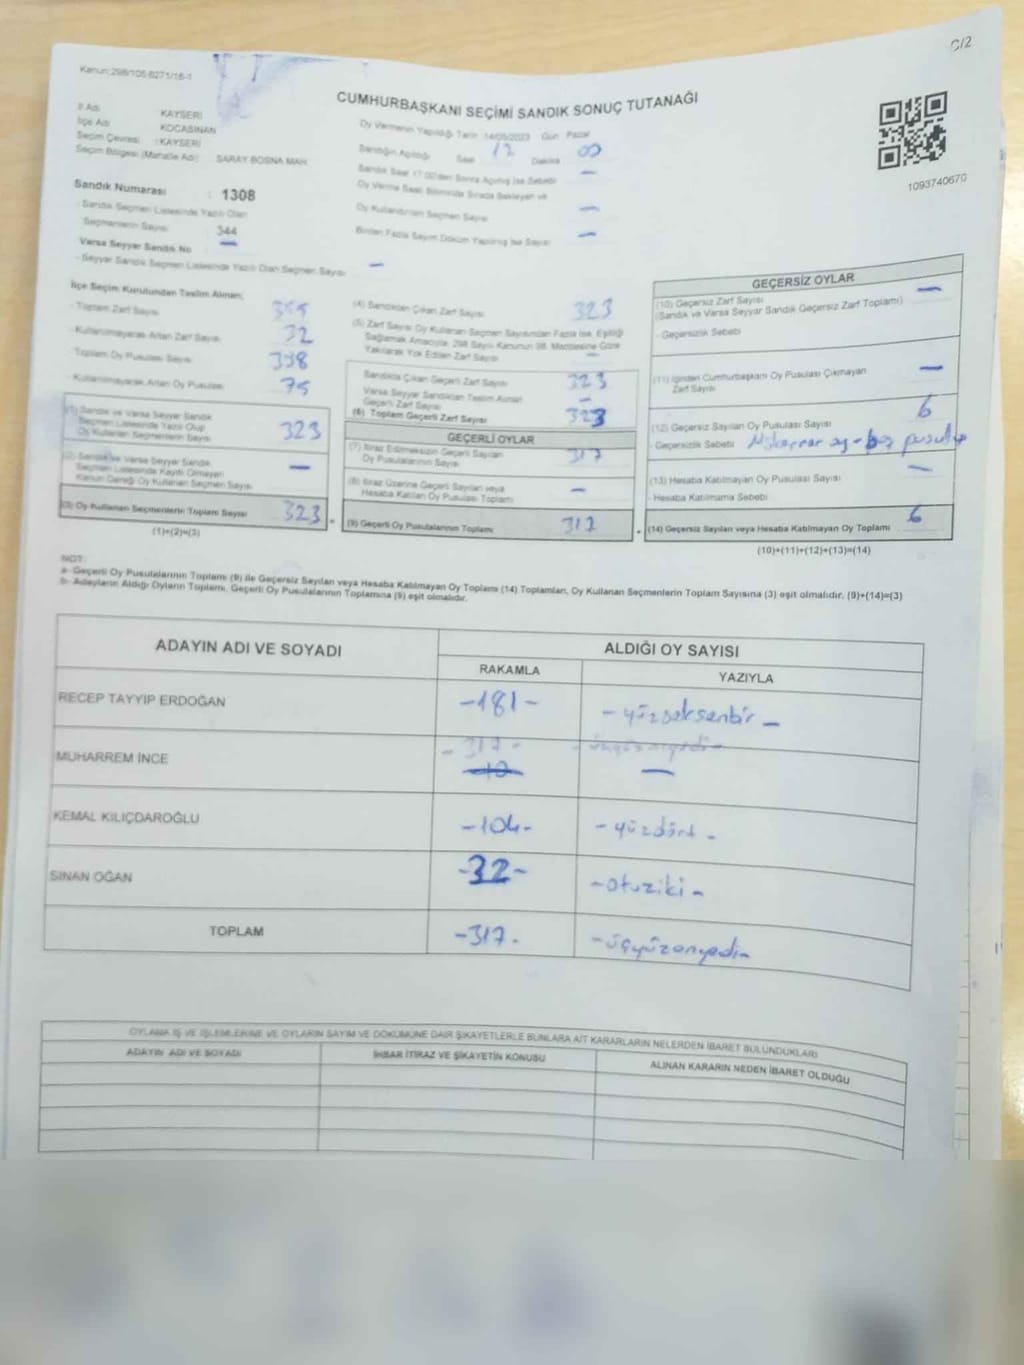 C/2
Kanun:298/105-6271/16-1
CUMHURBAŞKANI SEÇİMİ SANDIK SONUÇ TUTANAĞI
İl Adı : KAYSERİ
İlçe Adı : KOCASİNAN
Seçim Çevresi : KAYSERİ
Seçim Bölgesi (Mahalle Adı) : SARAY BOSNA MAH.
Sandık Numarası : 1308
- Sandık Seçmen Listesinde Yazılı Olan
Seçmenlerin Sayısı 344
Varsa Seyyar Sandık No —
- Seyyar Sandık Seçmen Listesinde Yazılı Olan Seçmen Sayısı —
Oy Vermenin Yapıldığı Tarih 14/05/2023 Gün Pazar
Sandığın Açıldığı Saat 17 Dakika 00
Sandık Saat 17.00'den Sonra Açılmış İse Sebebi —
Oy Verme Saati Bitiminde Sırada Bekleyen ve
Oy Kullandırılan Seçmen Sayısı —
Birden Fazla Sayım Döküm Yapılmış İse Sayısı —
1093740670
İlçe Seçim Kurulundan Teslim Alınan;
- Toplam Zarf Sayısı 355
- Kullanılmayarak Artan Zarf Sayısı 32
- Toplam Oy Pusulası Sayısı 398
- Kullanılmayarak Artan Oy Pusulası 75
(1) Sandık ve Varsa Seyyar Sandık
Seçmen Listesinde Yazılı Olup
Oy Kullanan Seçmenlerin Sayısı 323
(2) Sandık ve Varsa Seyyar Sandık
Seçmen Listesinde Kayıtlı Olmayan
Kanun Gereği Oy Kullanan Seçmen Sayısı —
(3) Oy Kullanan Seçmenlerin Toplam Sayısı 323
(1)+(2)=(3)
(4) Sandıktan Çıkan Zarf Sayısı 323
(5) Zarf Sayısı Oy Kullanan Seçmen Sayısından Fazla İse, Eşitliği
Sağlamak Amacıyla, 298 Sayılı Kanunun 98. Maddesine Göre
Yakılarak Yok Edilen Zarf Sayısı —
Sandıkta Çıkan Geçerli Zarf Sayısı 323
Varsa Seyyar Sandıktan Teslim Alınan
Geçerli Zarf Sayısı —
(6) Toplam Geçerli Zarf Sayısı 323
GEÇERLİ OYLAR
(7) İtiraz Edilmeksizin Geçerli Sayılan
Oy Pusulalarının Sayısı 317
(8) İtiraz Üzerine Geçerli Sayılan veya
Hesaba Katılan Oy Pusulası Toplamı —
(9) Geçerli Oy Pusulalarının Toplamı 317
GEÇERSİZ OYLAR
(10) Geçersiz Zarf Sayısı —
(Sandık ve Varsa Seyyar Sandık Geçersiz Zarf Toplamı)
- Geçersizlik Sebebi
(11) İçinden Cumhurbaşkanı Oy Pusulası Çıkmayan
Zarf Sayısı —
(12) Geçersiz Sayılan Oy Pusulası Sayısı 6
- Geçersizlik Sebebi oy - boş pusula
(13) Hesaba Katılmayan Oy Pusulası Sayısı —
- Hesaba Katılmama Sebebi
(14) Geçersiz Sayılan veya Hesaba Katılmayan Oy Toplamı 6
(10)+(11)+(12)+(13)=(14)
NOT:
a- Geçerli Oy Pusulalarının Toplamı (9) ile Geçersiz Sayılan veya Hesaba Katılmayan Oy Toplamı (14) Toplamları, Oy Kullanan Seçmenlerin Toplam Sayısına (3) eşit olmalıdır. (9)+(14)=(3)
b- Adayların Aldığı Oyların Toplamı, Geçerli Oy Pusulalarının Toplamına (9) eşit olmalıdır.
ADAYIN ADI VE SOYADI ALDIĞI OY SAYISI
RAKAMLA YAZIYLA
RECEP TAYYİP ERDOĞAN -181- -yüzseksenbir-
-317- -üçyüzonyedi-
MUHARREM İNCE —
KEMAL KILIÇDAROĞLU -104- -yüzdört-
SİNAN OĞAN -32- -otuziki-
TOPLAM -317- -üçyüzonyedi-
OYLAMA İŞ VE İŞLEMLERİNE VE OYLARIN SAYIM VE DÖKÜMÜNE DAİR ŞİKAYETLERLE BUNLARA AİT KARARLARIN NELERDEN İBARET BULUNDUKLARI
ADAYIN ADI VE SOYADI İHBAR İTİRAZ VE ŞİKAYETİN KONUSU ALINAN KARARIN NEDEN İBARET OLDUĞU